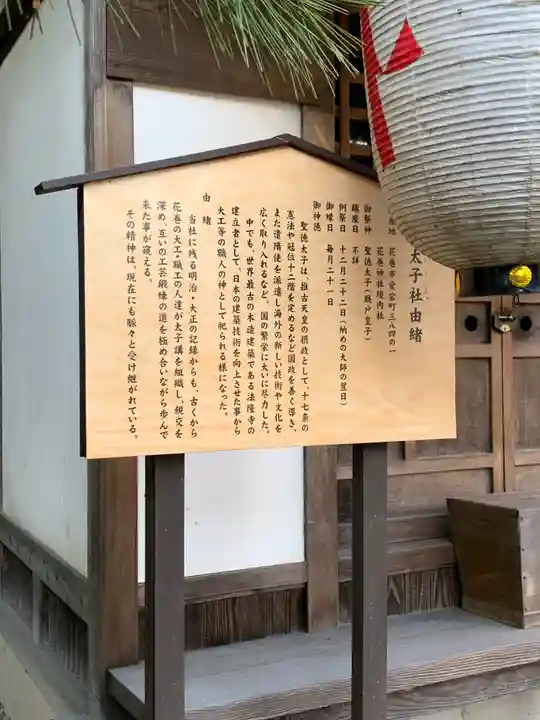 太子社由緒
在地　花巻市愛宕町三八四の一
花巻神社境内社
御祭神　聖徳太子(厩戸皇子)
鎮座日　不詳
例祭日　十二月二十二日(納めの大師の翌日)
御縁日　毎月二十一日
御神徳
聖徳太子は、推古天皇の摂政として、十七条の
憲法や冠位十二階を定めるなど国政を善く導き、
また遣隋使を派遣し海外の新しい技術や文化を
広く取り入れるなど、国の繁栄に大いに尽力した。
中でも、世界最古の木造建築である法隆寺の
建立者として、日本の建築技術を向上させた事から
大工等の職人の神として祀られる様になった。
由緒
当社に残る明治・大正の記録からも、古くから
花巻の大工・職工の人達が太子講を組織し、親交を
深め、互いの工芸鍛練の道を極め合いながら歩んで
来た事が窺える。
その精神は、現在にも脈々と受け継がれている。